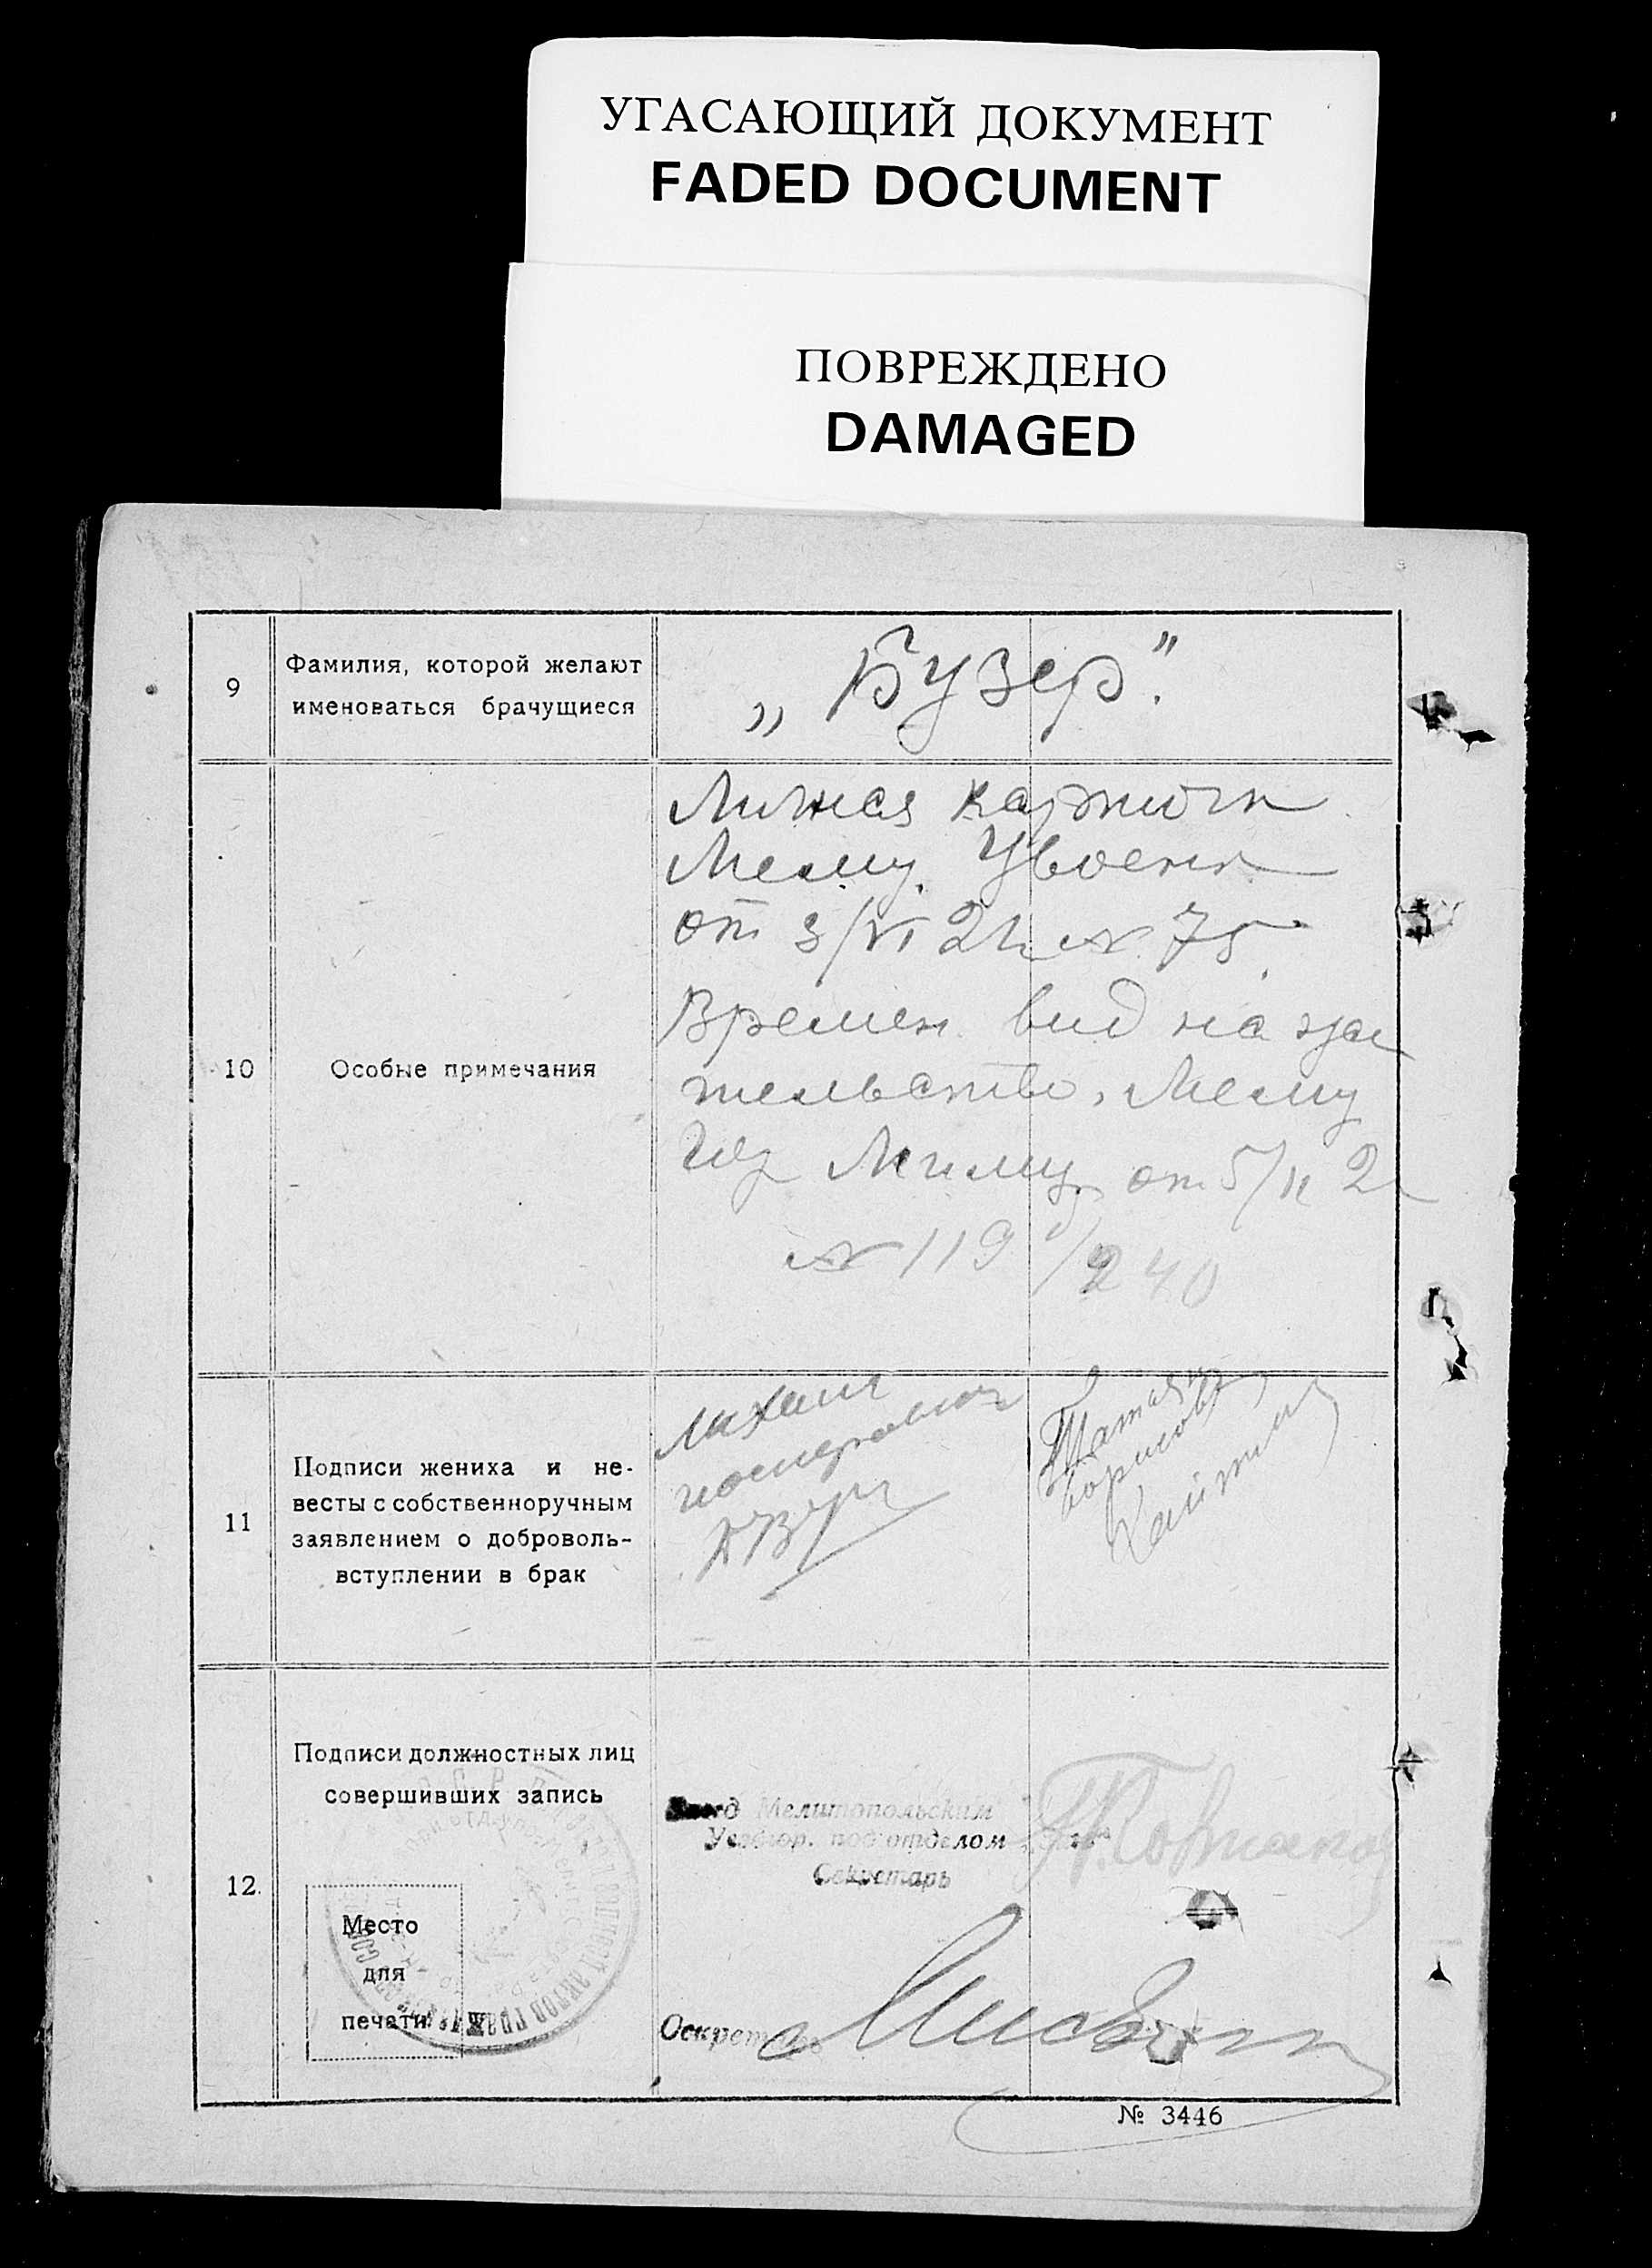 УГАСАЮЩИЙ ДОКУМЕНТ
FADED DOCUMENT
ПОВРЕЖДЕНО
DAMAGED
9
Фамилия, которой желают
именоваться брачущиеся
„Бузер".
10
Особые примечания
Личная карточк
Мелиту. Увоенк
от 3/VI 21 г № 75
Времен. вид на жи
тельство, Мелиту
Гор Милиц. от 5/II 2
№ 119 /240
11
Подписи жениха и не-
весты с собственноручным
заявлением о доброволь-
вступлении в брак
Михаил
Бузер
Татьяна
Борисовн
12.
Подписи должностных лиц
совершивших запись
Место
для
печати
Завед Мелитопольским
подотделом
Секретарь
Секретарь
№ 3446